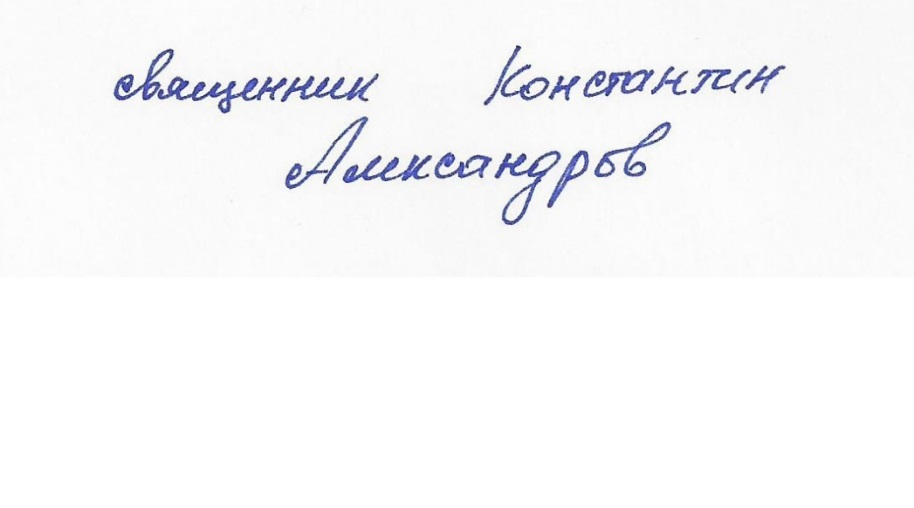 священник Константин
Александров